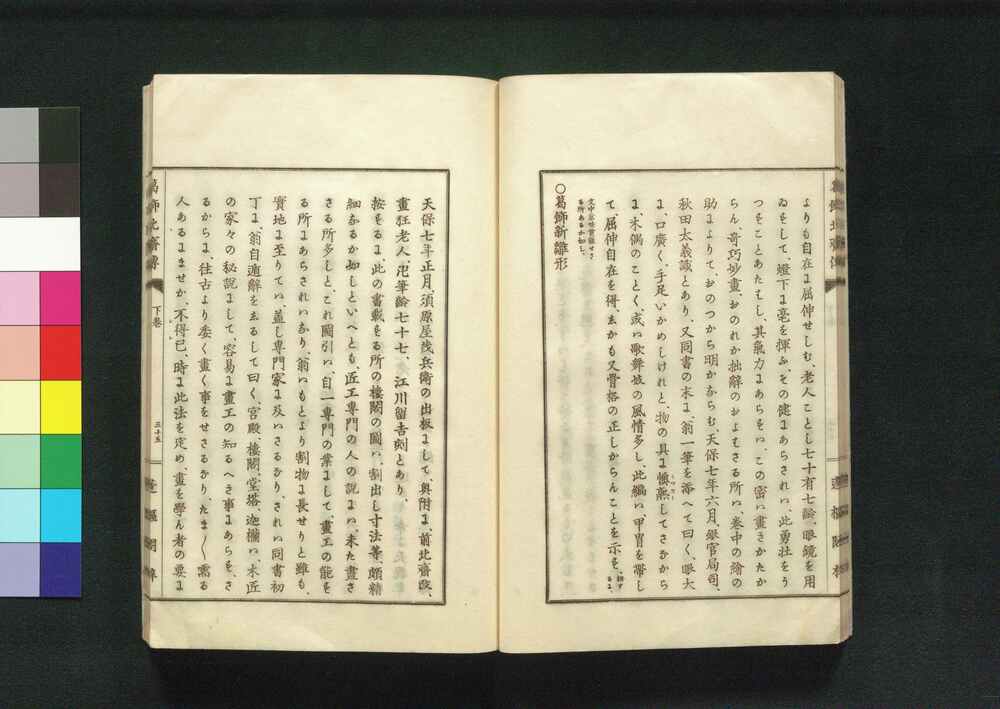 よりも自在に屈伸せしむ、老人ことし七十有七齢、眼鏡を用
ゐをして、燈下に毫を揮ふ、その健にあらされハ、此勇壮をう
つすことあたハし、其氣力にあらそハ、この密に畫きかたか
らん、奇巧妙畫、おのれか拙辭のおよはさる所ハ、巻中の繪の
助によりて、おのつから明かならむ、天保七年六月、縣官局司、
秋田太義識とあり、又同書の末に、翁一筆を添へて曰く、眼大
に、口廣く、手足いかめしけれと、物の具に慣熟してさなから
に、木偶のことく或ハ歌舞妓の風情多し、此編ハ、甲冑を帶し
て、屈伸自在を得、しかも又骨格の正しからんことを示す、
〇葛飾新雛形
天保七年正月、須原屋茂兵衛の出板にして、奥附に、前北齋改、
畫狂老人、卍筆齢七十七、江川留吉刻とあり、
按するに、此の書載する所の樓閣の圖ハ、割出し寸法等、頗精
細なるか如しといへとも、匠工專門の人の說にハ、未た畫さ
さる所多しと、これ圖引ハ、自一專門の業にして、畫工の能を
る所にあらされハなり、翁ハもとより割物に長せりと雖も、
實地に至りてハ、蓋し專門家に及ハさるなり、されハ同書初
丁に、翁自遁辭をしるして曰く、宮殿、樓閣、堂塔、迦欄ハ、木匠
の家々の秘說にして、容易に畫工の知るへき事にあらす、さ
るからに、往古より委く畫く事をせさるなり、たま〳〵需る
人あるにまかせ、不得已、時に此法を定め、畫を學ん者の要に
葛飾北齋傳
下巻
三十五
蓬樞閣梓